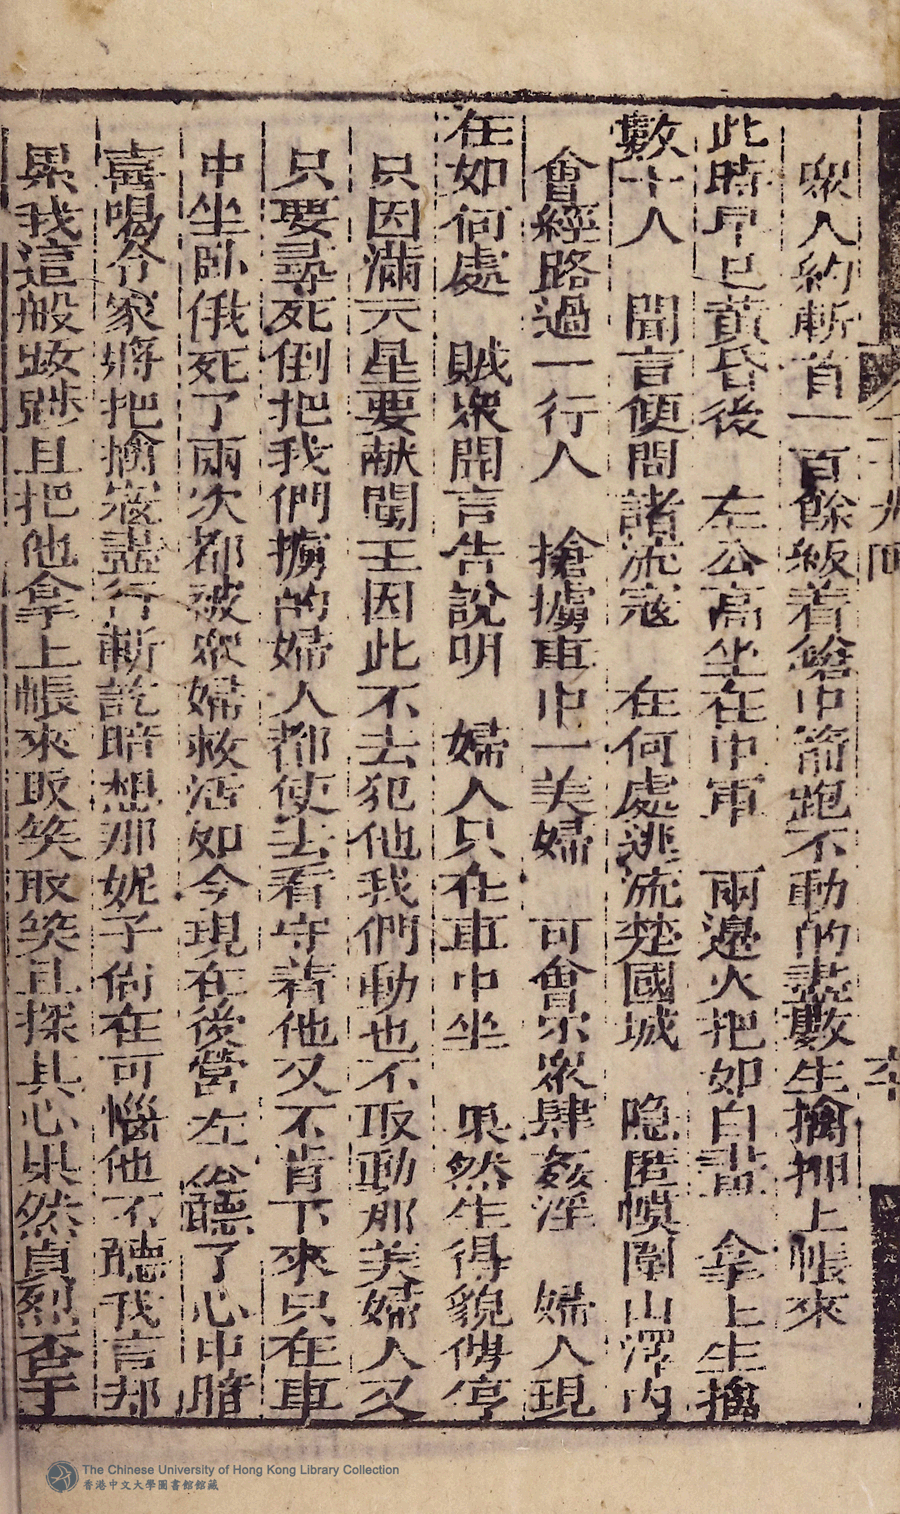 衆人約斬首一百餘級着鎗中箭跑不動的盡數生擒押上帳來
此時早已黃昏後　左公高坐在中軍　兩邊火把如白晝　拿上生擒
數十人　聞言便問諸流寇　在何處逃流楚國城　隐匿幀闈山澤内
會經路過一行人　搶擄車中一美婦　可會尔衆肆姦淫　婦人現
在如何處　賊衆開言告說明　婦人只在車中坐　果然生得貌傳停
只因滿天星要献闖王因此不去犯他我們動也不敢動那美婦人又
只要尋死倒把我們擄的婦人都使去看守着他又不肯下來只在車
中坐卧俄死了兩次都被衆婦救活如今現在後營左公聽了心中暗
喜喝令家將把擒寇盡行斬訖暗想那妮子尙在可惱他不聽我言却
累我這般跋踄且把他拿上帳來取笑取笑且探其心果然貞烈否于
The Chinese University of Hong Kong Library Collection
香港中文大學圖書館館藏